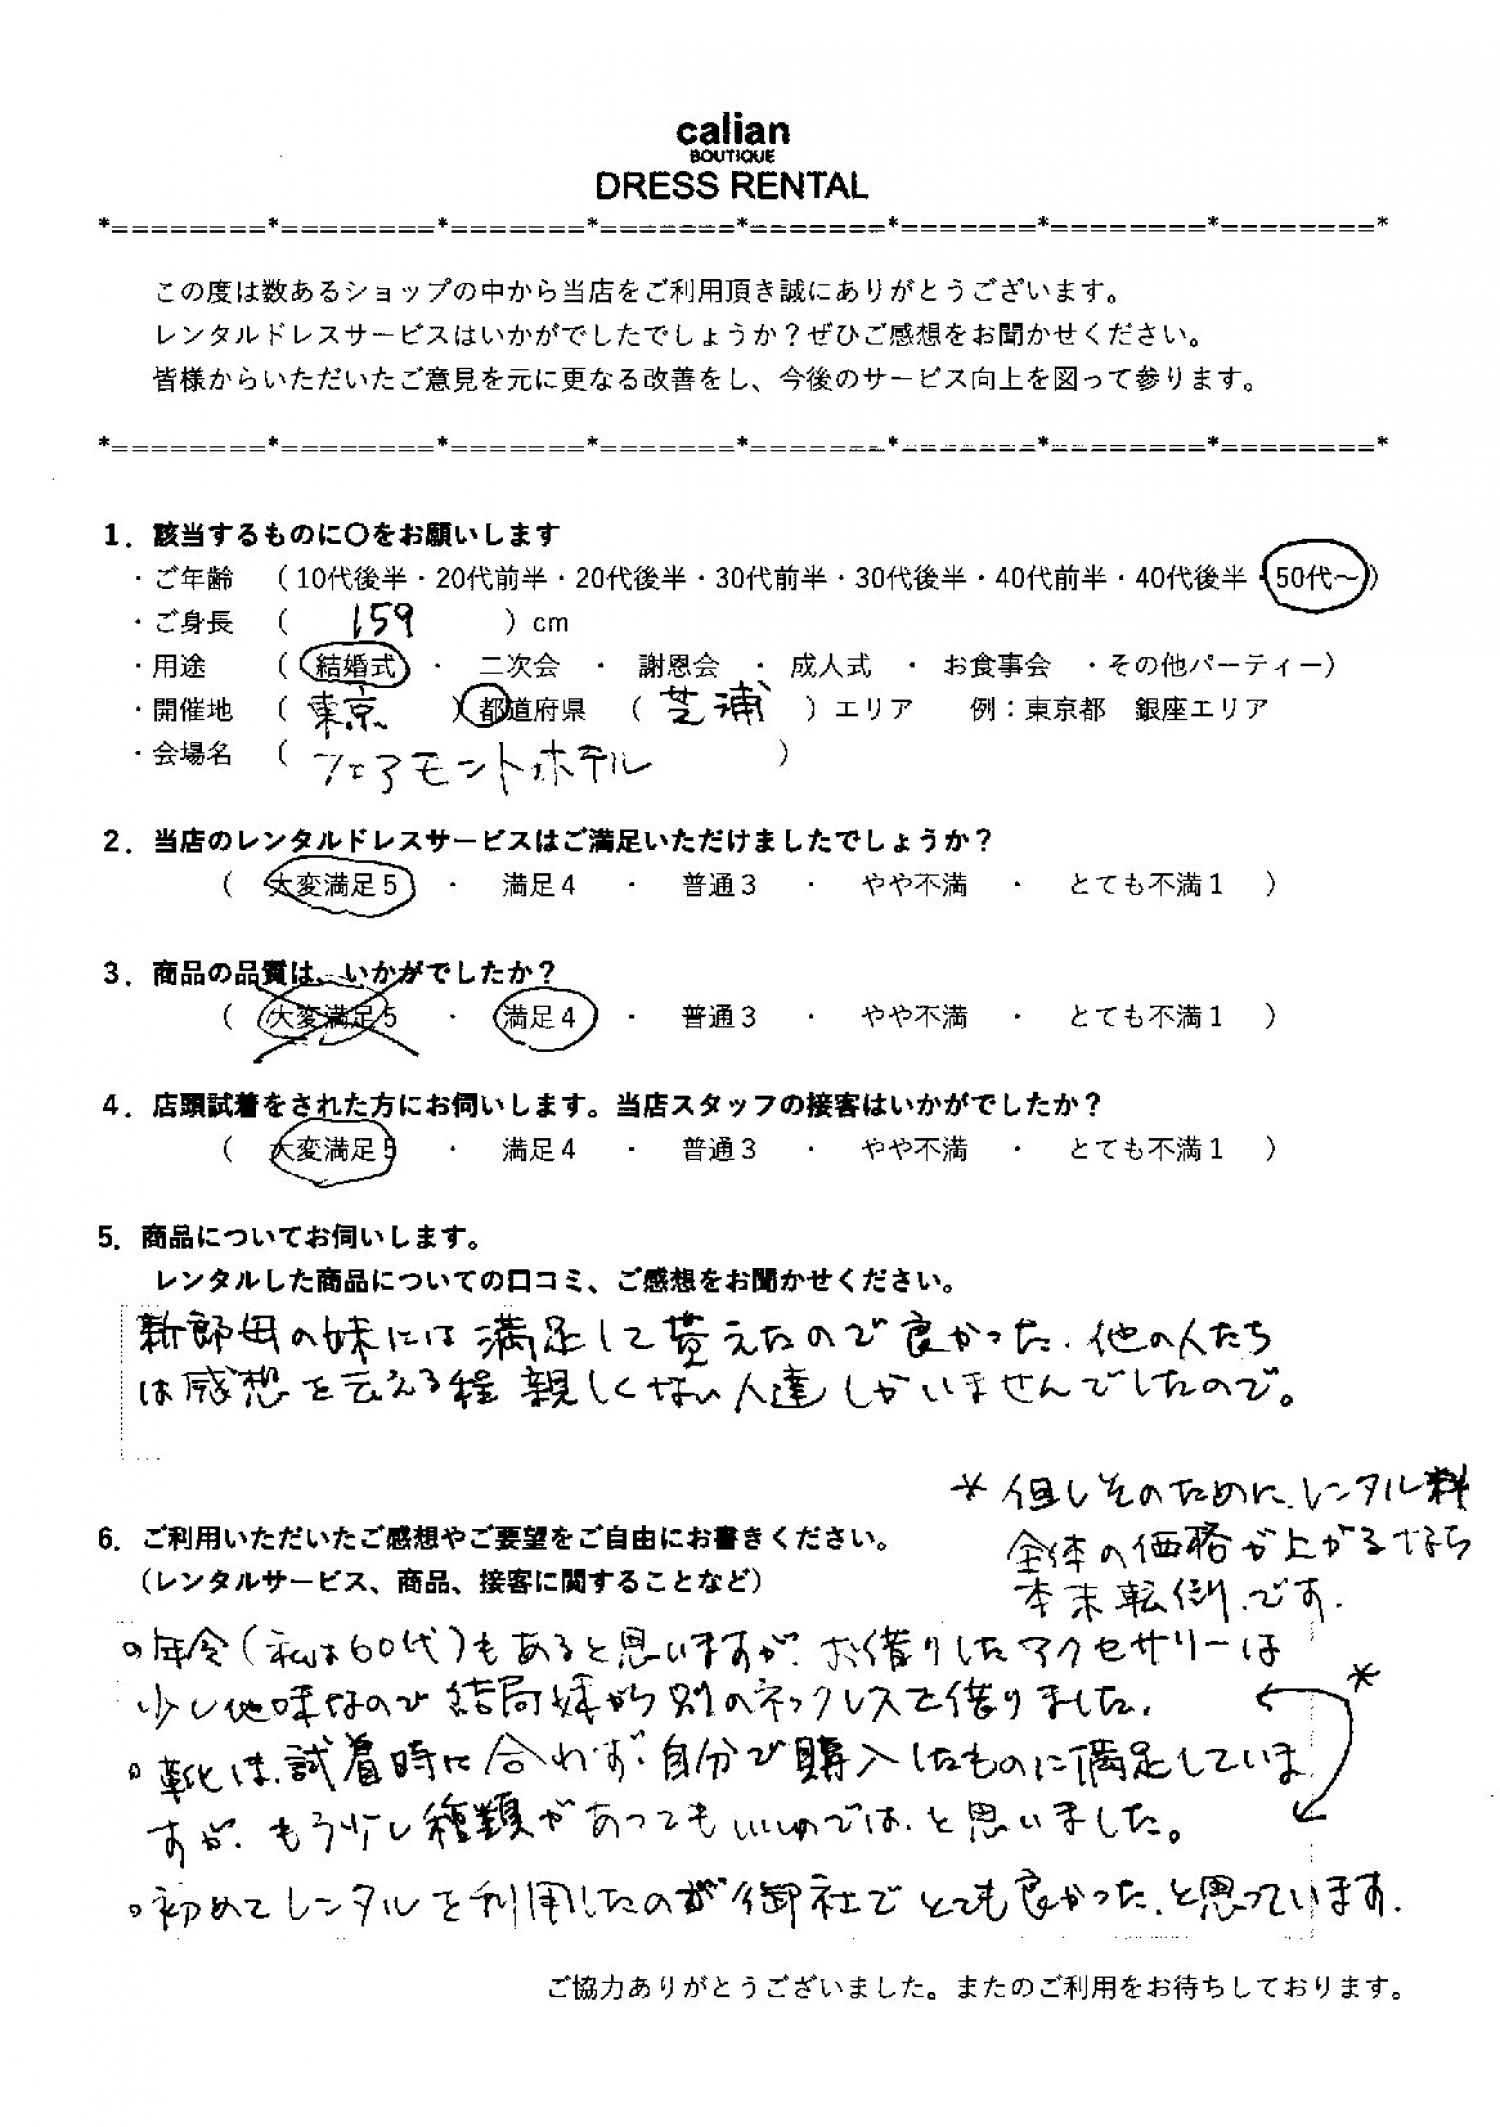 calian
BOUTIQUE
DRESS RENTAL
*========*========*=======*=======*=======*=======*========*========*
この度は数あるショップの中から当店をご利用頂き誠にありがとうございます。
レンタルドレスサービスはいかがでしたでしょうか？ぜひご感想をお聞かせください。
皆様からいただいたご意見を元に更なる改善をし、今後のサービス向上を図って参ります。
*========*========*=======*=======*=======*=======*========*========*
1．該当するものに〇をお願いします
・ご年齢 （10代後半・20代前半・20代後半・30代前半・30代後半・40代前半・40代後半・50代～）
・ご身長 （ 159 ）cm
・用途 （ 結婚式 ・ 二次会 ・ 謝恩会 ・ 成人式 ・ お食事会 ・その他パーティー）
・開催地 （ 東京 ）都道府県 （ 芝浦 ）エリア 例：東京都 銀座エリア
・会場名 （ フェアモントホテル ）
2．当店のレンタルドレスサービスはご満足いただけましたでしょうか？
（ 大変満足5 ・ 満足4 ・ 普通3 ・ やや不満 ・ とても不満1 ）
3．商品の品質は、いかがでしたか？
（ 大変満足5 ・ 満足4 ・ 普通3 ・ やや不満 ・ とても不満1 ）
4．店頭試着をされた方にお伺いします。当店スタッフの接客はいかがでしたか？
（ 大変満足5 ・ 満足4 ・ 普通3 ・ やや不満 ・ とても不満1 ）
5．商品についてお伺いします。
レンタルした商品についての口コミ、ご感想をお聞かせください。
新郎母の妹には満足して貰えたので良かった、他の人たち
は感想を云える程親しくない人達しかいませんでしたので。
* 但しそのために、レンタル料
全体の価格が上がるなら
本末転倒、です.
6．ご利用いただいたご感想やご要望をご自由にお書きください。
（レンタルサービス、商品、接客に関することなど）
。年令(私は60代)もあると思いますが、お借りしたアクセサリーは
少し地味なので結局妹から別のネックレスを借りました.
*
。靴は、試着時に合わず、自分で購入したものに満足していま
すが、もう少し種類があってもいいのでは、と思いました。
。初めてレンタルを利用したのが御社でとても良かった、と思っています.
ご協力ありがとうございました。またのご利用をお待ちしております。